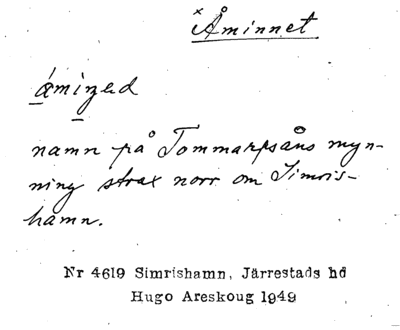 × Åminnet
namn på Tommarpsåns myn-
ning strax norr om Simris-
hamn.
Nr 4619 Simrishamn, Järrestads hd
Hugo Areskoug 1949